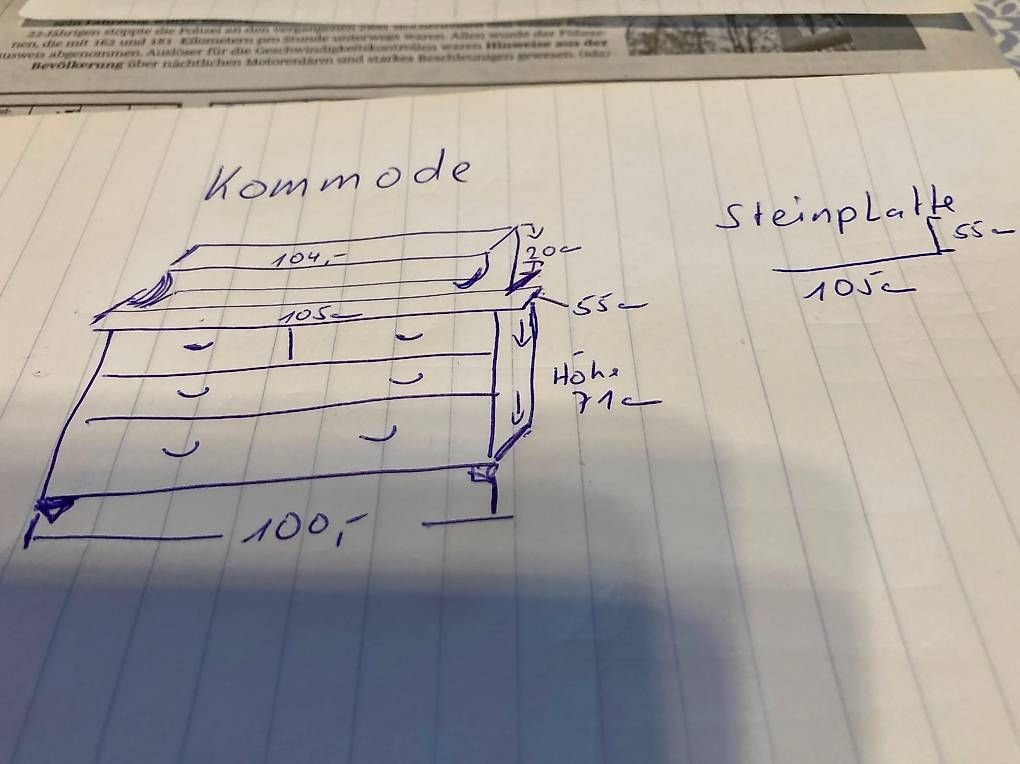 22-Jährigen stoppte die Polizei an den vergangenen zwei
nen, die mit 162 und 181 Kilometern pro Stunde unterwegs waren. Allen wurde der Führer-
ausweis abgenommen. Auslöser für die Geschwindigkeitskontrollen waren Hinweise aus der
Bevölkerung über nächtlichen Motorenlärm und starkes Beschleunigen gewesen. (sda)
Kommode
Steinplatte
55c
105c
104,-
20c
105c
55c
Höhe
71c
100,-